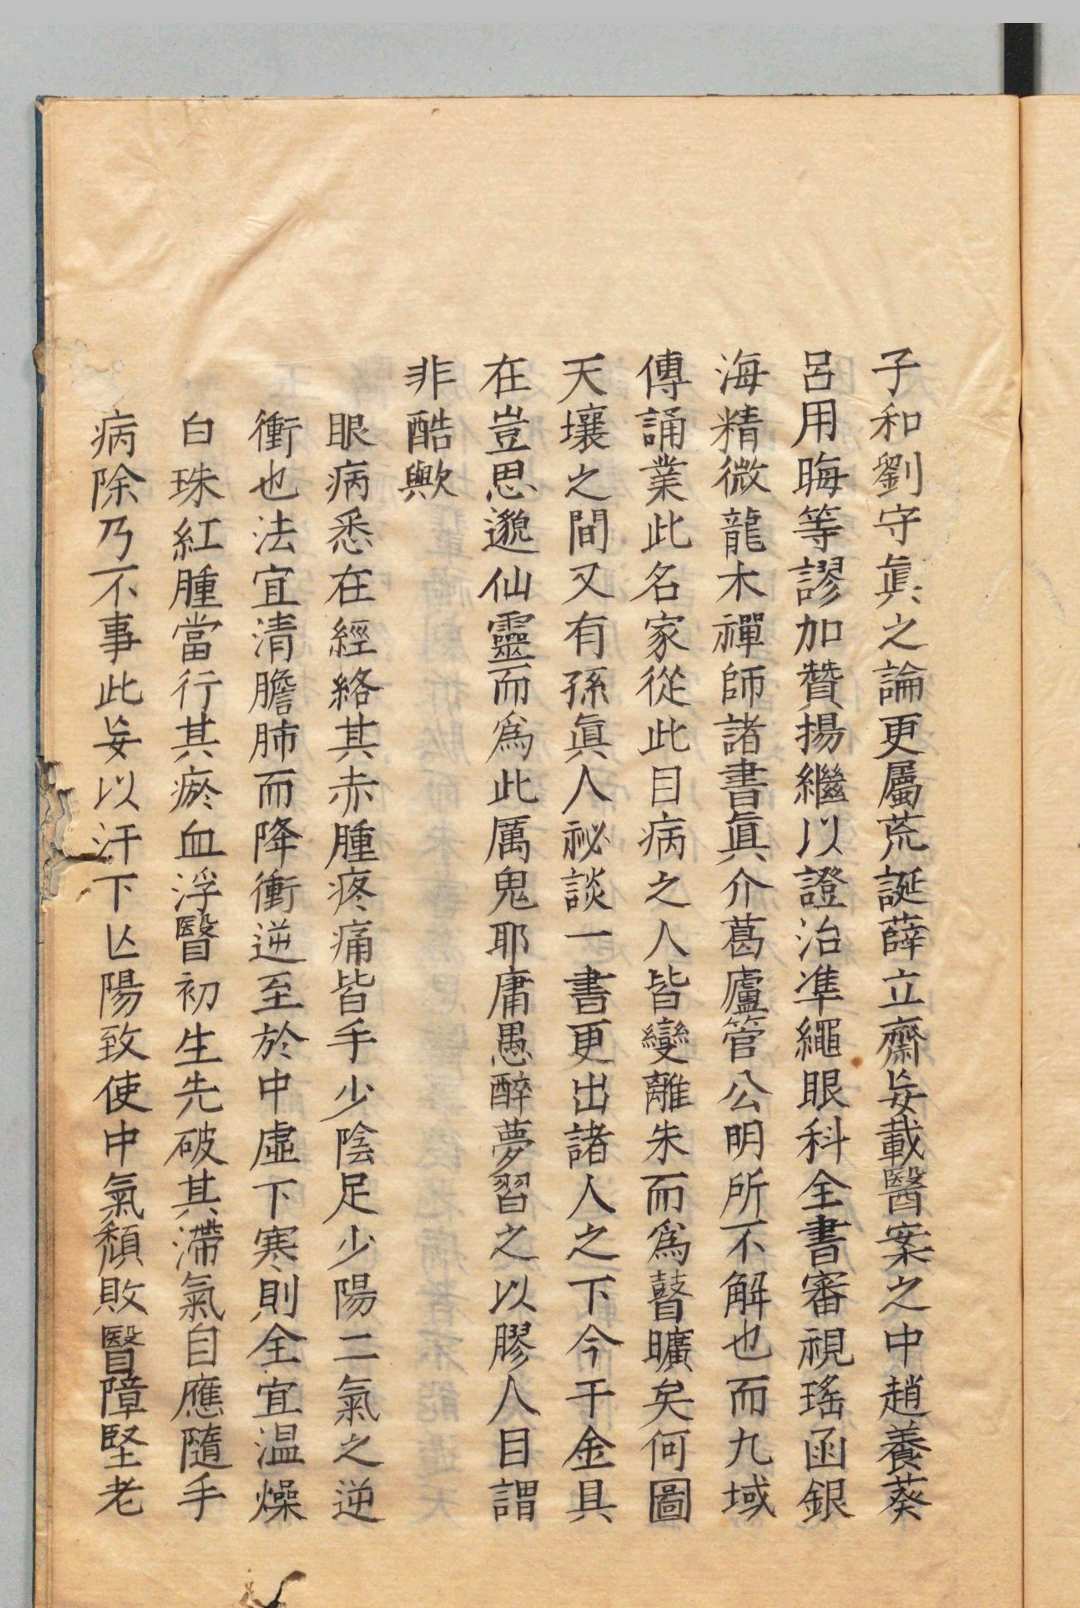 子和劉守眞之論更屬荒誕薛立齋妄載醫案之中趙養葵
呂用晦等謬加贊揚繼以證治準繩眼科全書審視瑤函銀
海精微龍木禪師諸書眞介葛廬管公明所不解也而九域
傳誦業此名家從此目病之人皆變離朱而爲瞽曠矣何圖
天壤之間又有孫眞人祕談一書更出諸人之下今千金具
在豈思邈仙靈而爲此厲鬼耶庸愚醉夢習之以膠人目謂
非酷歟
眼病悉在經絡其赤腫疼痛皆手少陰足少陽二氣之逆
衝也法宜清膽肺而降衝逆至於中虛下寒則全宜温燥
白珠紅腫當行其瘀血浮瞖初生先破其滯氣自應隨手
病除乃不事此妄以汗下亾陽致使中氣頽敗瞖障堅老